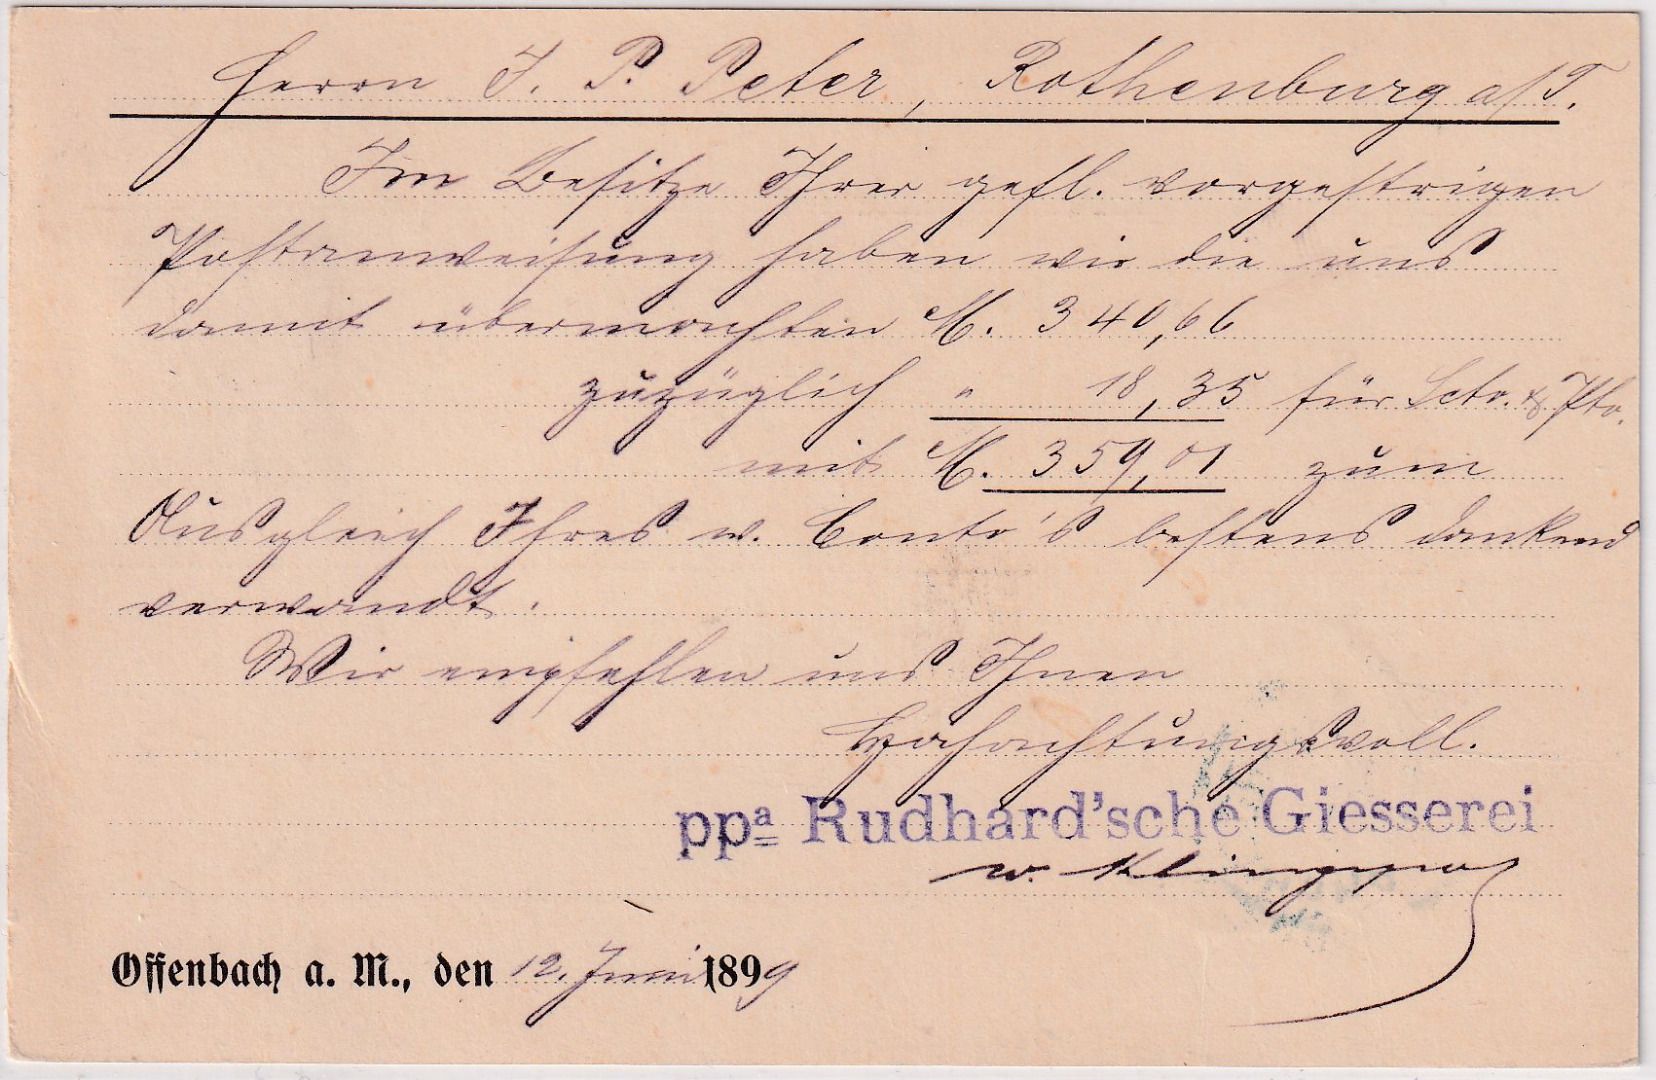 Herrn J. P. Peter, Rothenburg a/T.
Im Besitze Ihrer gefl. vorgestrigen
Postanweisung haben wir die uns
damit übermachten M. 340,66
zuzüglich " 18,35 für Scto. & Pto.
mit M. 359,01 zum
Ausgleich Ihres w. Conto's bestens dankend
verwandt.
Wir empfehlen uns Ihnen
Hochachtungsvoll.
ppa Rudhard'sche Giesserei
w. Klingspor
Offenbach a. M., den 12. Juni 1899